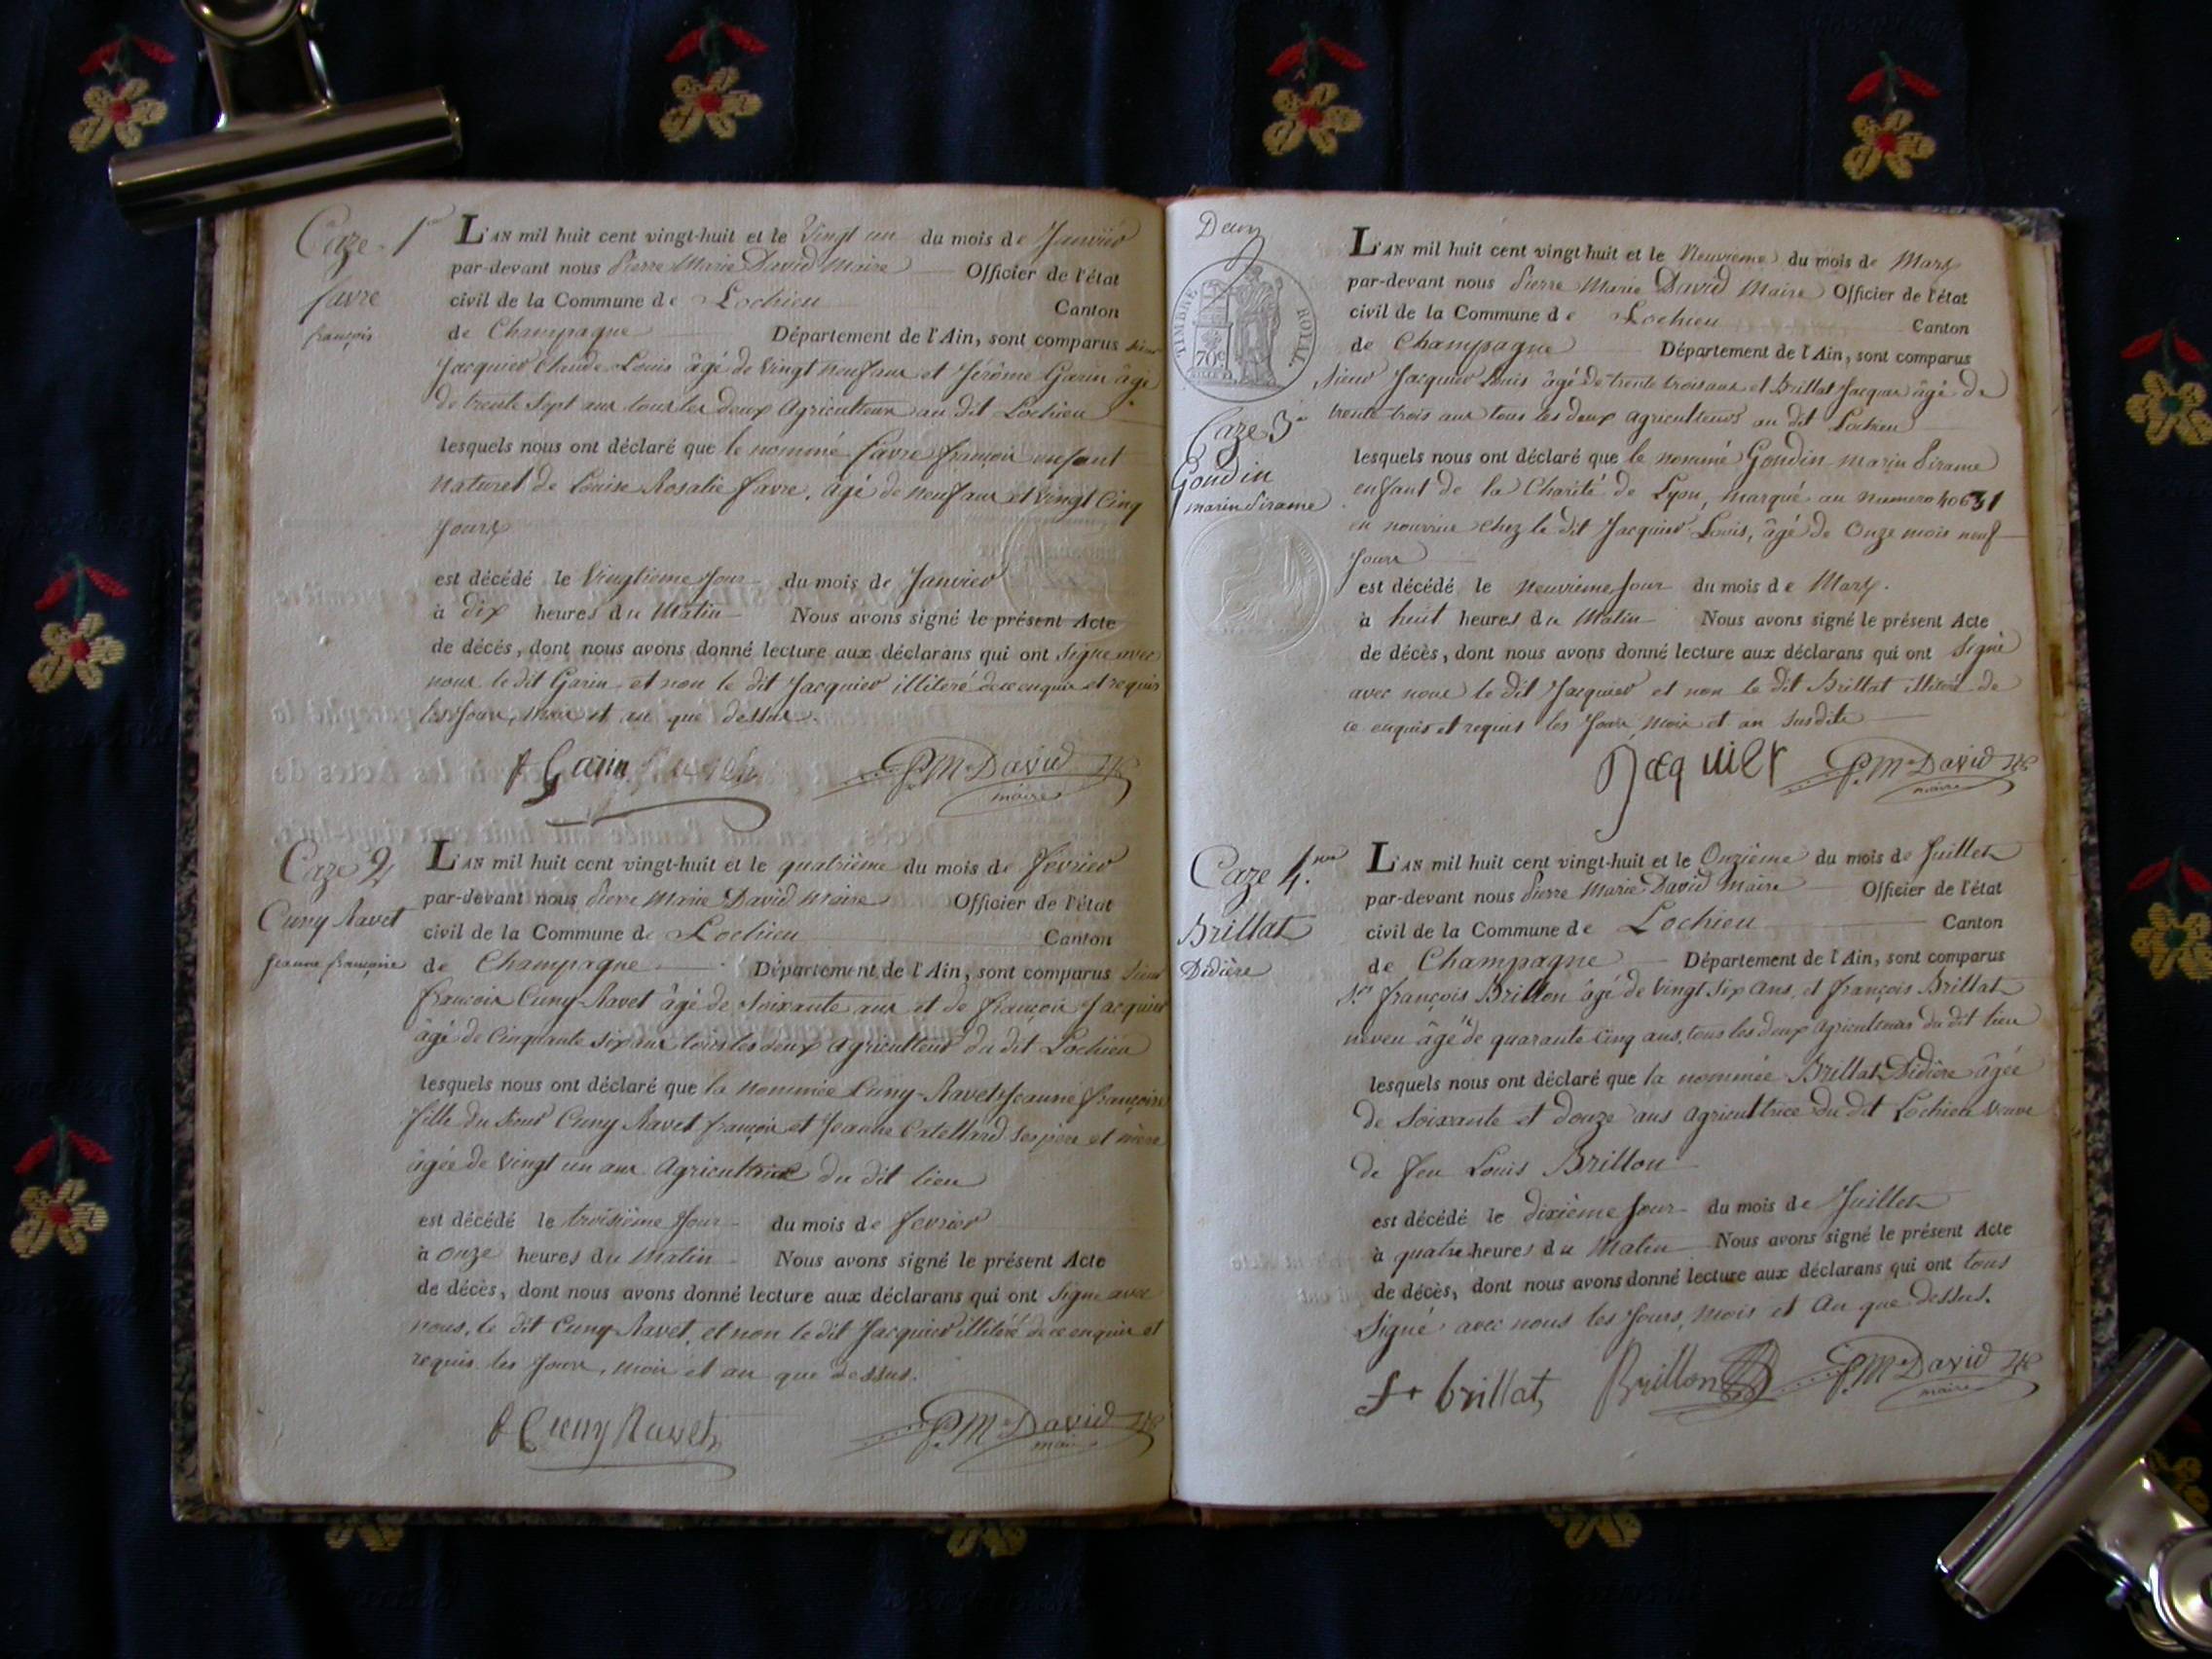 Caze 1
favre
françois
L'AN mil huit cent vingt-huit et le Vingt un du mois de Janvier
par-devant nous Pierre Marie David Maire Officier de l'état
civil de la Commune de Lochieu Canton
de Champagne Département de l'Ain, sont comparus sieur
Jacquier Claude Louis âgé de vingt neuf ans et Jérôme Garin âgé
de trente Sept ans tous les deux Agriculteurs au dit Lochieu
lesquels nous ont déclaré que le nommé favre françois enfant
naturel de Louise Rosalie favre, âgé de neuf ans et vingt Cinq
Jours
est décédé le Vingtieme Jour du mois de Janvier
à dix heures du Matin Nous avons signé le présent Acte
de décès, dont nous avons donné lecture aux déclarans qui ont Signé avec
nous le dit Garin et non le dit Jacquier illiteré de ce enquis et requis
les Jour, Mois et an que dessus.
Garin
P. M David
maire
Caze 2
Cuny Ravet
jeanne françoise
L'AN mil huit cent vingt-huit et le quatrième du mois de fevrier
par-devant nous Pierre Marie David Maire Officier de l'état
civil de la Commune de Lochieu Canton
de Champagne Département de l'Ain, sont comparus Sieur
françois Cuny-Ravet âgé de Soixante ans et de françois Jacquier
âgé de Cinquante Six ans tous les deux Agriculteurs du dit Lochieu
lesquels nous ont déclaré que la nommée Cuny-Ravet Jeanne françoise
fille du Sieur Cuny Ravet françois et Jeanne Catellard ses père et mère
âgée de Vingt un ans Agricultrice du dit lieu
est décédé le troisième Jour du mois de fevrier
à onze heures du Matin Nous avons signé le présent Acte
de décès, dont nous avons donné lecture aux déclarans qui ont Signé avec
nous, le dit Cuny-Ravet, et non le dit Jacquier illiteré de ce enquis et
requis les Jours, mois et an que dessus.
Cuny Ravet
P. M David
maire
Deux
TIMBRE ROYAL
70c
Caze 3e
Goudin
marin Pirame
L'AN mil huit cent vingt-huit et le Neuvieme du mois de Mars
par-devant nous Pierre Marie David Maire Officier de l'état
civil de la Commune de Lochieu Canton
de Champagne Département de l'Ain, sont comparus
Sieur Jacquier Louis âgé de trente trois ans et Brillat Jacques âgé de
trente-trois ans tous les deux agriculteurs au dit Lochieu
lesquels nous ont déclaré que le nommé Goudin marin Pirame
enfant de la Charité de Lyon, marqué au numero 40631
en nourrice chez le dit Jacquier Louis, âgé de Onze mois neuf
Jours
est décédé le neuvieme Jour du mois de Mars.
à huit heures du Matin Nous avons signé le présent Acte
de décès, dont nous avons donné lecture aux déclarans qui ont Signé
avec nous le dit Jacquier et non le dit Brillat illiteré de
ce enquis et requis les Jour, mois et an susdits
Jacquier
P. M David
maire
Caze 4.me
Brillat
Didière
L'AN mil huit cent vingt-huit et le Onzieme du mois de Juillet
par-devant nous Pierre Marie David Maire Officier de l'état
civil de la Commune de Lochieu Canton
de Champagne Département de l'Ain, sont comparus
Sr. françois Brillon âgé de Vingt Six Ans, et françois Brillat
neveu âgé de quarante Cinq ans, tous les deux Agriculteurs du dit lieu
lesquels nous ont déclaré que la nommée Brillat Didière âgée
de Soixante et douze ans Agricultrice du dit Lochieu Veuve
de feu Louis Brillon
est décédé le dixième Jour du mois de Juillet
à quatre heures du Matin Nous avons signé le présent Acte
de décès, dont nous avons donné lecture aux déclarans qui ont tous
Signé avec nous les Jours, mois et An que dessus.
brillat
Brillon
P. M David
maire